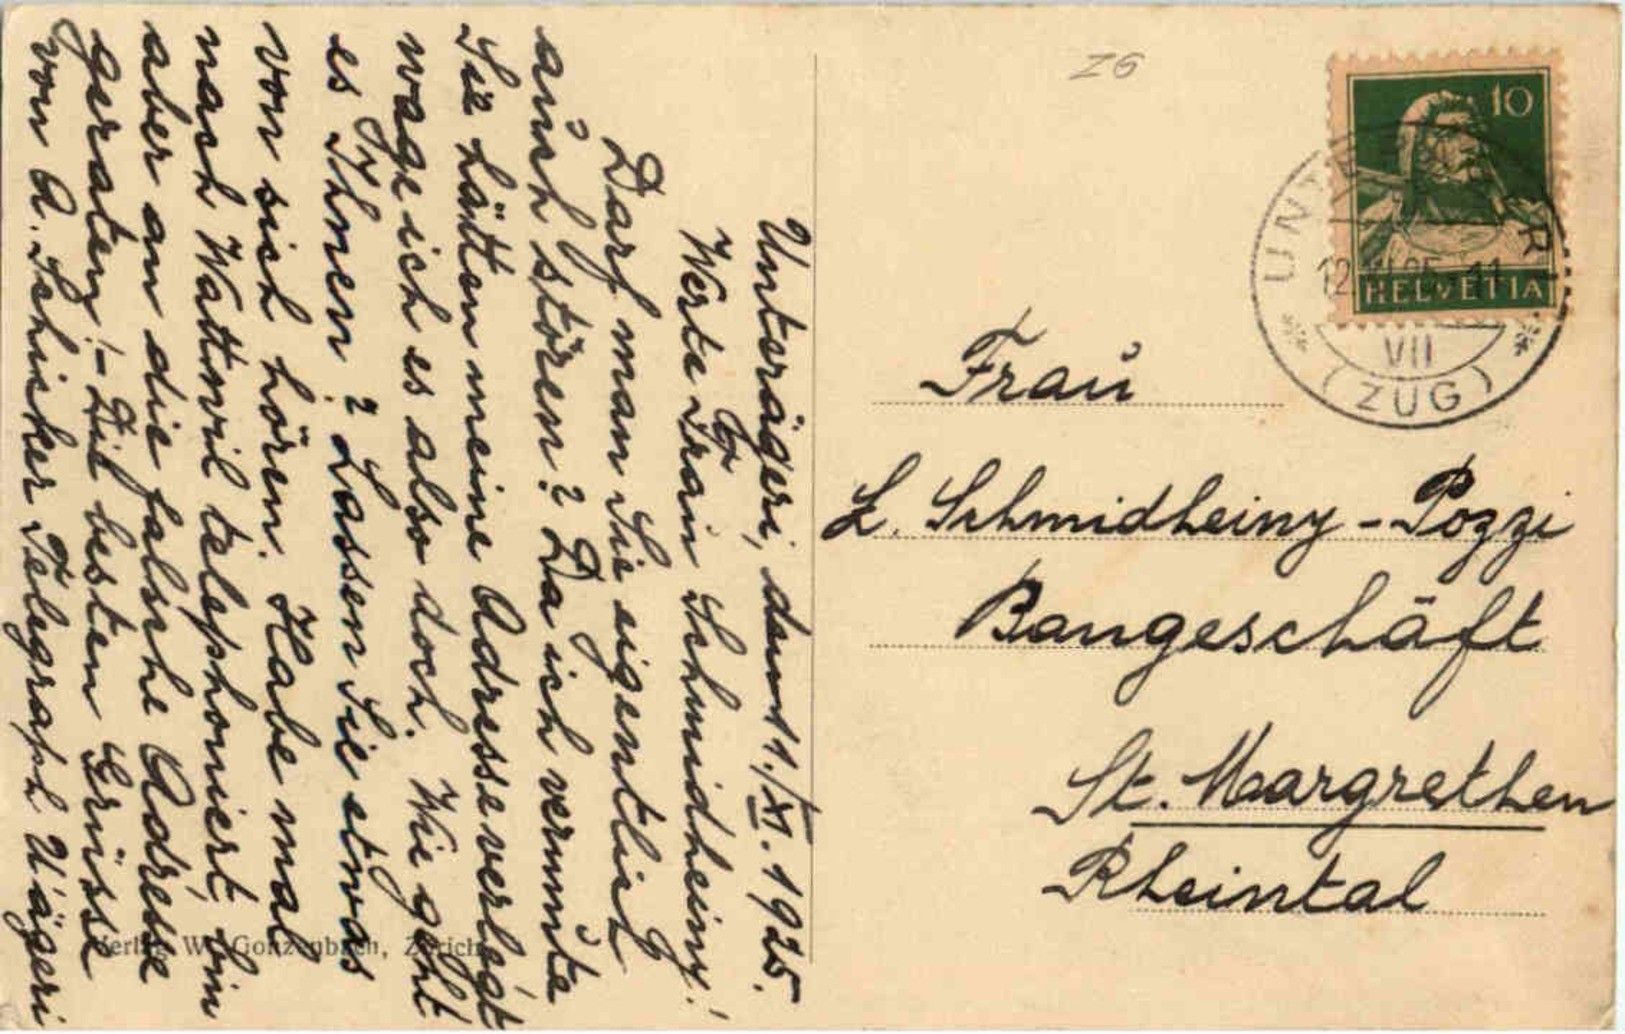 Unterägeri, den 11./XI. 1925.
Werte Frau Schmidheiny!
Darf man Sie eigentlich
auch stören? Da ich vermute
Sie hätten meine Adresse verlegt
wage ich es also doch. Wie geht
es Ihnen? Lassen Sie etwas
von sich hören. Habe mal
nach Wattwil telephoniert, bin
aber an die falsche Adresse
geraten! - Die besten Grüsse
von A. Schicker Telegraph U'ägeri
Verlag W. Gonzenbach, Zürich
Z6
10
HELVETIA
UNTERÄGERI
12. XI. 25. - 11
VII
(ZUG)
Frau
L. Schmidheiny - Pozzi
Baugeschäft
St. Margrethen
Rheintal